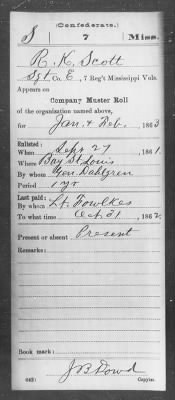 (Confederate.)
S 7 Miss.
R. K. Scott
Sgt, Co. E, 7 Reg't Mississippi Vols.
Appears on
Company Muster Roll
of the organization named above,
for Jan. & Feb., 1863
Enlisted:
When Sept 27, 1861.
Where Bay St. Louis
By whom Gen. Dahlgren
Period 1 yr
Last paid:
By whom Lt. Fowlkes
To what time Oct 31, 1862.
Present or absent Present
Remarks:
Book mark:
J B Dowd
(642) Copyist.